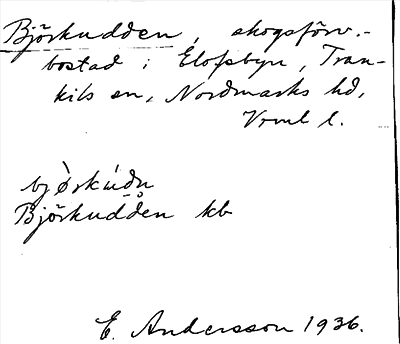 Björkudden, skogsförv.-
bostad i Elofsbyn, Tran-
kils sn, Nordmarks hd,
Vrml l.
bjørkúdn
Björkudden kb
E. Andersson 1936.